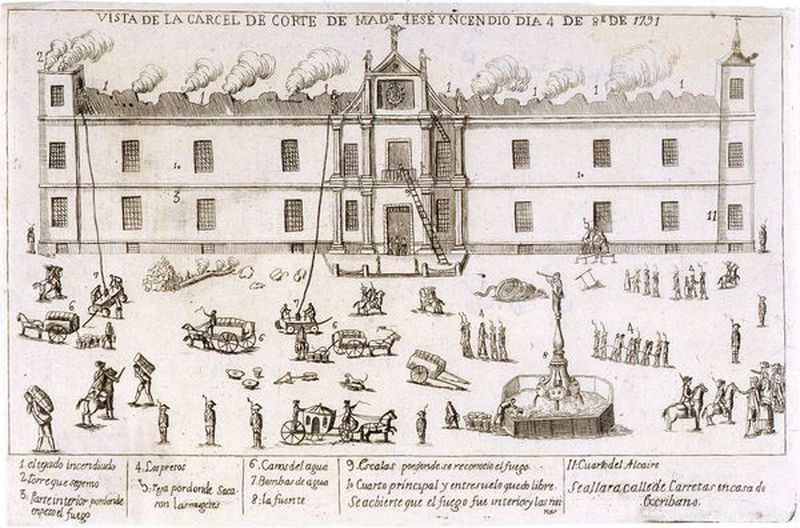 VISTA DE LA CARCEL DE CORTE DE MADº. qESEYNCENDIO DIA 4 DE 8RE DE 1791
1. el tejado incendiado
2 torre que se qemo
3. Parte interior por donde
empezo el fuego
4. Los presos
5. Teja por donde Saca-
ron las mugeres
6. Caros del agua
7. Bombas de agua
8. la fuente
9. Escalas por donde se reconocio el fuego
10 Cuarto principal y entresuelo quedo libre.
Se acbierte que el fuego fue interior y las
11. Cuarto del Alcaire
Se allara calle de Carretas en casa de
Escribano.